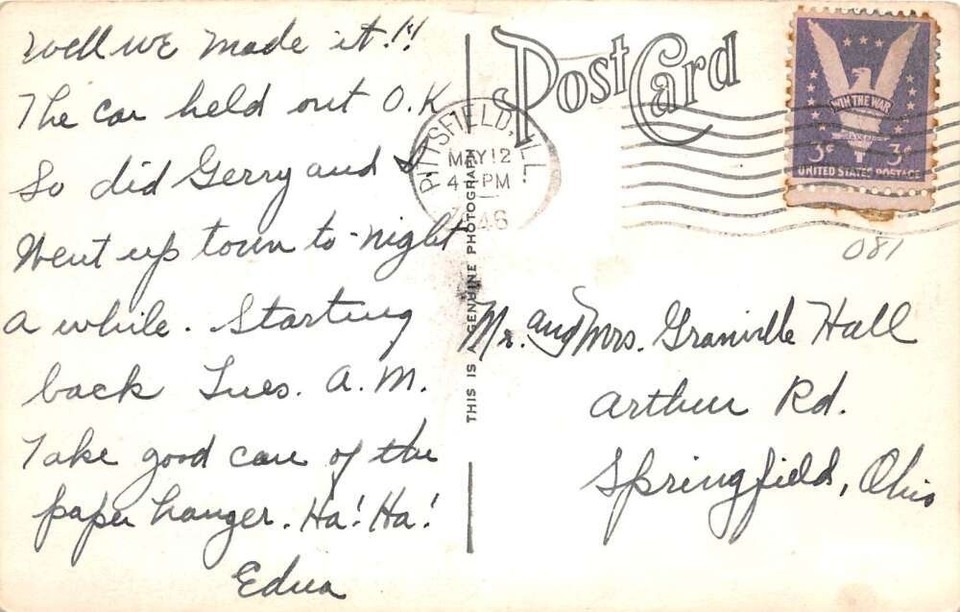 Well we made it!!
The car held out O.K
So did Gerry and I
Went up town to-night
a while. Starting
back Tues. A.M.
Take good care of the
paper hanger. Ha! Ha!
Edna
THIS IS A GENUINE PHOTOGRAPH
Post Card
PITTSFIELD, ILL.
MAY 12
4 PM
46
WIN THE WAR
3¢ 3¢
UNITED STATES POSTAGE
081
Mr. and Mrs. Granville Hall
Arthur Rd.
Springfield, Ohio